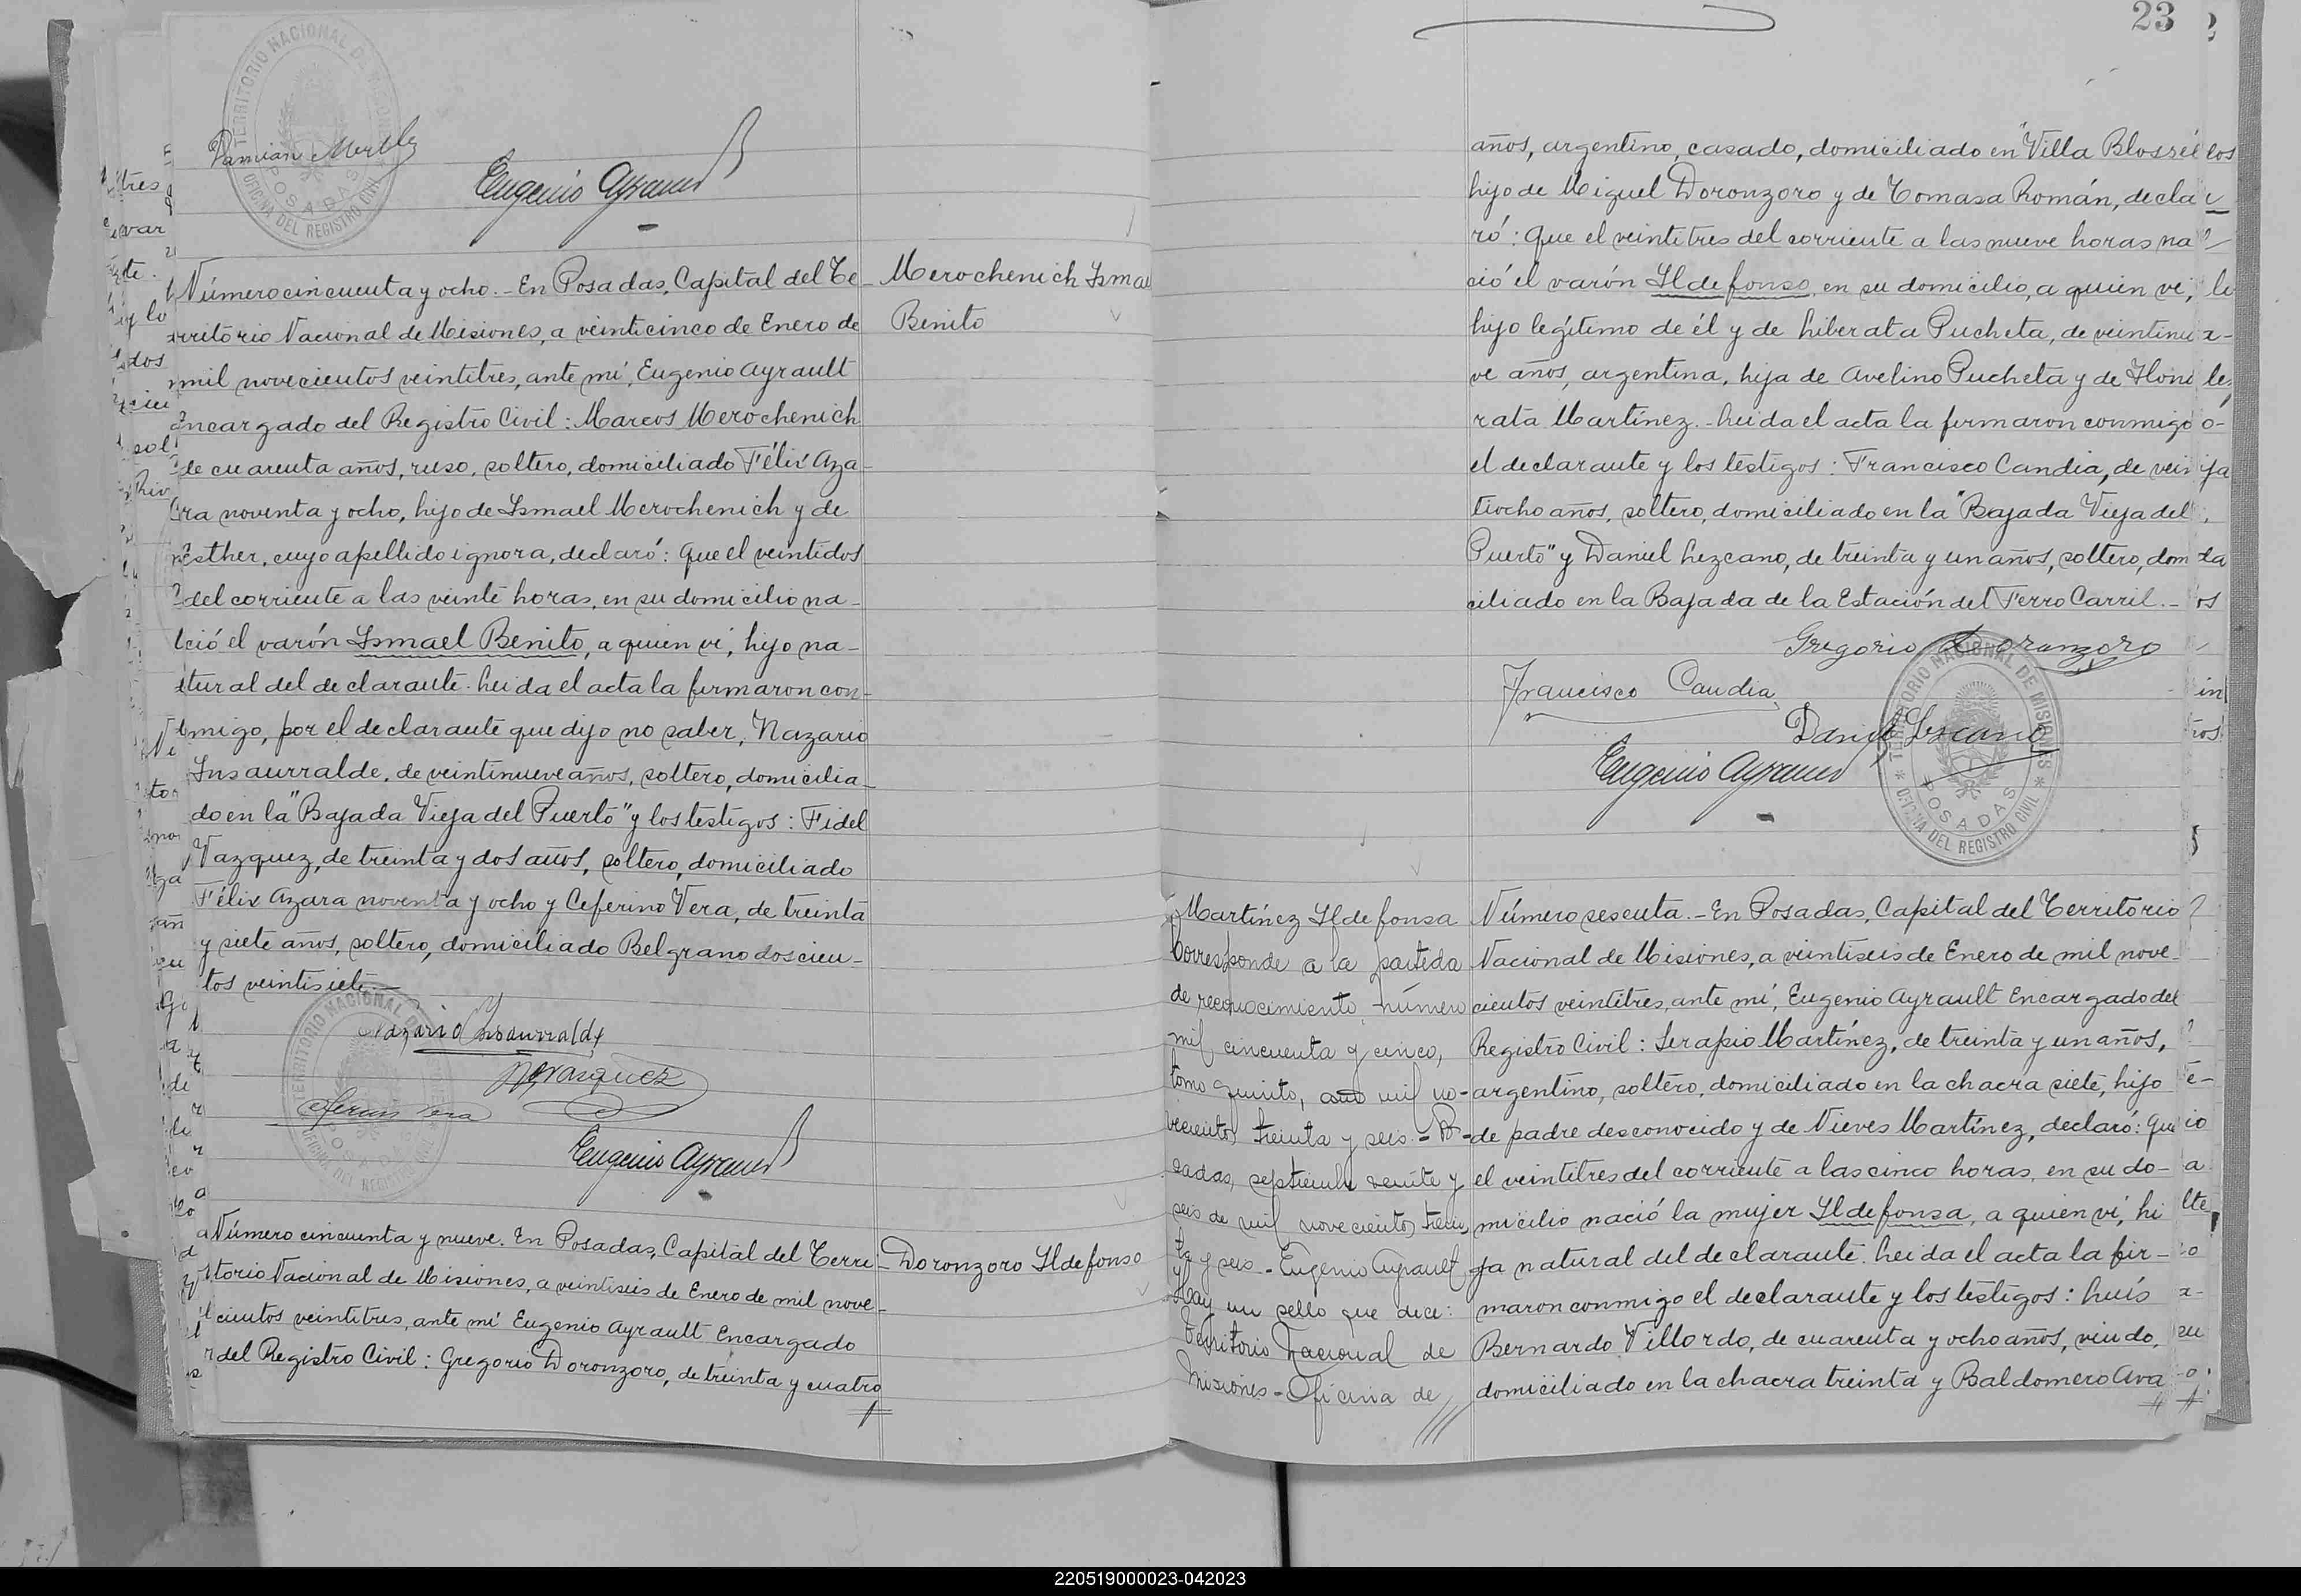 TERRITORIO NACIONAL DE MISIONES
OFICINA DEL REGISTRO CIVIL
POSADAS
Damian
Eugenio Ayrault
Número cincuenta y ocho. - En Posadas, Capital del Te-
rritorio Nacional de Misiones, a veinticinco de Enero de
mil novecientos veintitres, ante mí, Eugenio Ayrault
Encargado del Registro Civil: Marcos Merochenich
de cuarenta años, ruso, soltero, domiciliado Félix Aza-
ra noventa y ocho, hijo de Ismael Merochenich y de
Esther, cuyo apellido ignora, declaró: Que el veintidos
del corriente a las veinte horas, en su domicilio na-
ció el varón Ismael Benito, a quien ví, hijo na-
tural del declarante. Leida el acta la firmaron con-
migo, por el declarante que dijo no saber, Nazario
Insaurralde, de veintinueve años, soltero, domicilia-
do en la "Bajada Vieja del Puerto" y los testigos: Fidel
Vazquez, de treinta y dos años, soltero, domiciliado
Félix Azara noventa y ocho y Ceferino Vera, de treinta
y siete años, soltero, domiciliado Belgrano doscien-
tos veintisiete.
Merochenich Ismael
Benito
Nazario Insaurralde
Vazquez
Vera
Eugenio Ayrault
TERRITORIO NACIONAL DE MISIONES
OFICINA DEL REGISTRO CIVIL
POSADAS
Número cincuenta y nueve. En Posadas, Capital del Terri-
torio Nacional de Misiones, a veintiseis de Enero de mil nove-
cientos veintitres, ante mí Eugenio Ayrault Encargado
del Registro Civil: Gregorio Doronzoro, de treinta y cuatro
Doronzoro Ildefonso
23
años, argentino, casado, domiciliado en "Villa Blossét
hijo de Miguel Doronzoro y de Tomasa Román, decla
ró: Que el veintitres del corriente a las nueve horas na
ció el varón Ildefonso, en su domicilio, a quien ví,
hijo legítimo de él y de Liberata Pucheta, de veintinue
ve años, argentina, hija de Avelino Pucheta y de Hono
rata Martínez. - Leida el acta la firmaron conmigo
el declarante y los testigos: Francisco Candia, de vein
tiocho años, soltero, domiciliado en la "Bajada Vieja del
Puerto" y Daniel Lezcano, de treinta y un años, soltero, domi
ciliado en la Bajada de la Estación del Ferro Carril. -
Gregorio Doronzoro
Francisco Candia
Daniel Lezcano
Eugenio Ayrault
TERRITORIO NACIONAL DE MISIONES
OFICINA DEL REGISTRO CIVIL
POSADAS
Martínez Ildefonsa
Corresponde a la partida
de reconocimiento número
mil cincuenta y cinco,
tomo quinto, año mil no-
vecientos treinta y seis. - Po-
sadas, septiembre veinte y
seis de mil novecientos trein
ta y seis - Eugenio Ayrault
Hay un sello que dice:
Territorio Nacional de
Misiones - Oficina de
Número sesenta. - En Posadas, Capital del Territorio
Nacional de Misiones, a veintiseis de Enero de mil nove-
cientos veintitres, ante mí, Eugenio Ayrault Encargado del
Registro Civil: Serapio Martínez, de treinta y un años,
argentino, soltero, domiciliado en la chacra siete, hijo
de padre desconocido y de Nieves Martínez, declaró: Que
el veintitres del corriente a las cinco horas, en su do-
micilio nació la mujer Ildefonsa, a quien ví, hi
ja natural del declarante. Leida el acta la fir-
maron conmigo el declarante y los testigos: Luís
Bernardo Villordo, de cuarenta y ocho años, viudo,
domiciliado en la chacra treinta y Baldomero Ava
220519000023-042023